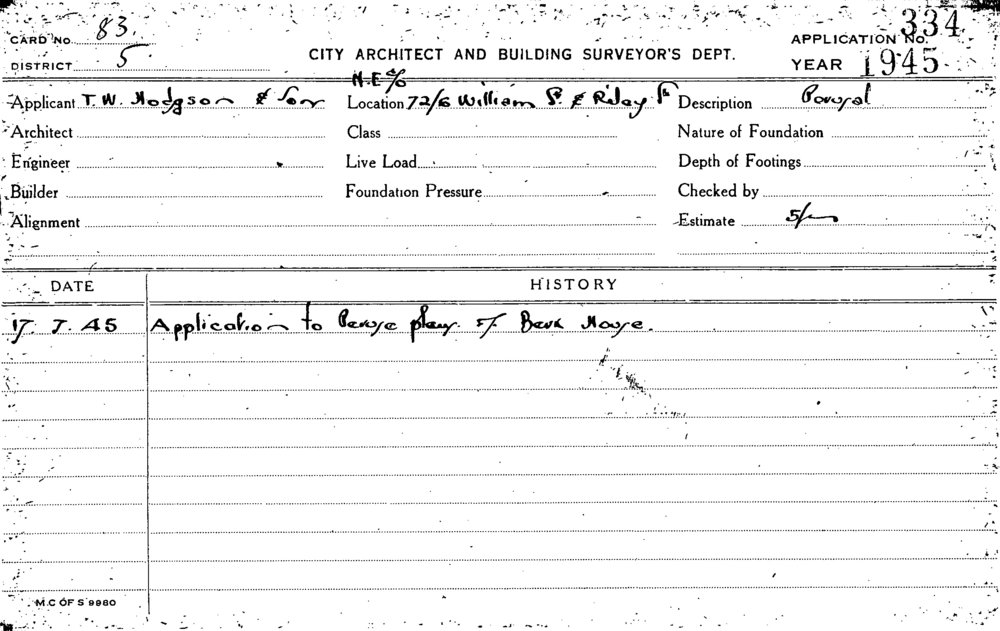 CARD No. 83.
APPLICATION No. 334
DISTRICT 5
CITY ARCHITECT AND BUILDING SURVEYOR'S DEPT.
YEAR 1945
N.E. c/o
Applicant T. W. Hodgson & Son Location 72/6 William St & Riley St Description Perusal
Architect Class Nature of Foundation
Engineer Live Load Depth of Footings
Builder Foundation Pressure Checked by
Alignment Estimate 5/-
DATE HISTORY
17. 7. 45 Application to Peruse plans of Beck House.
M.C OF S 9980